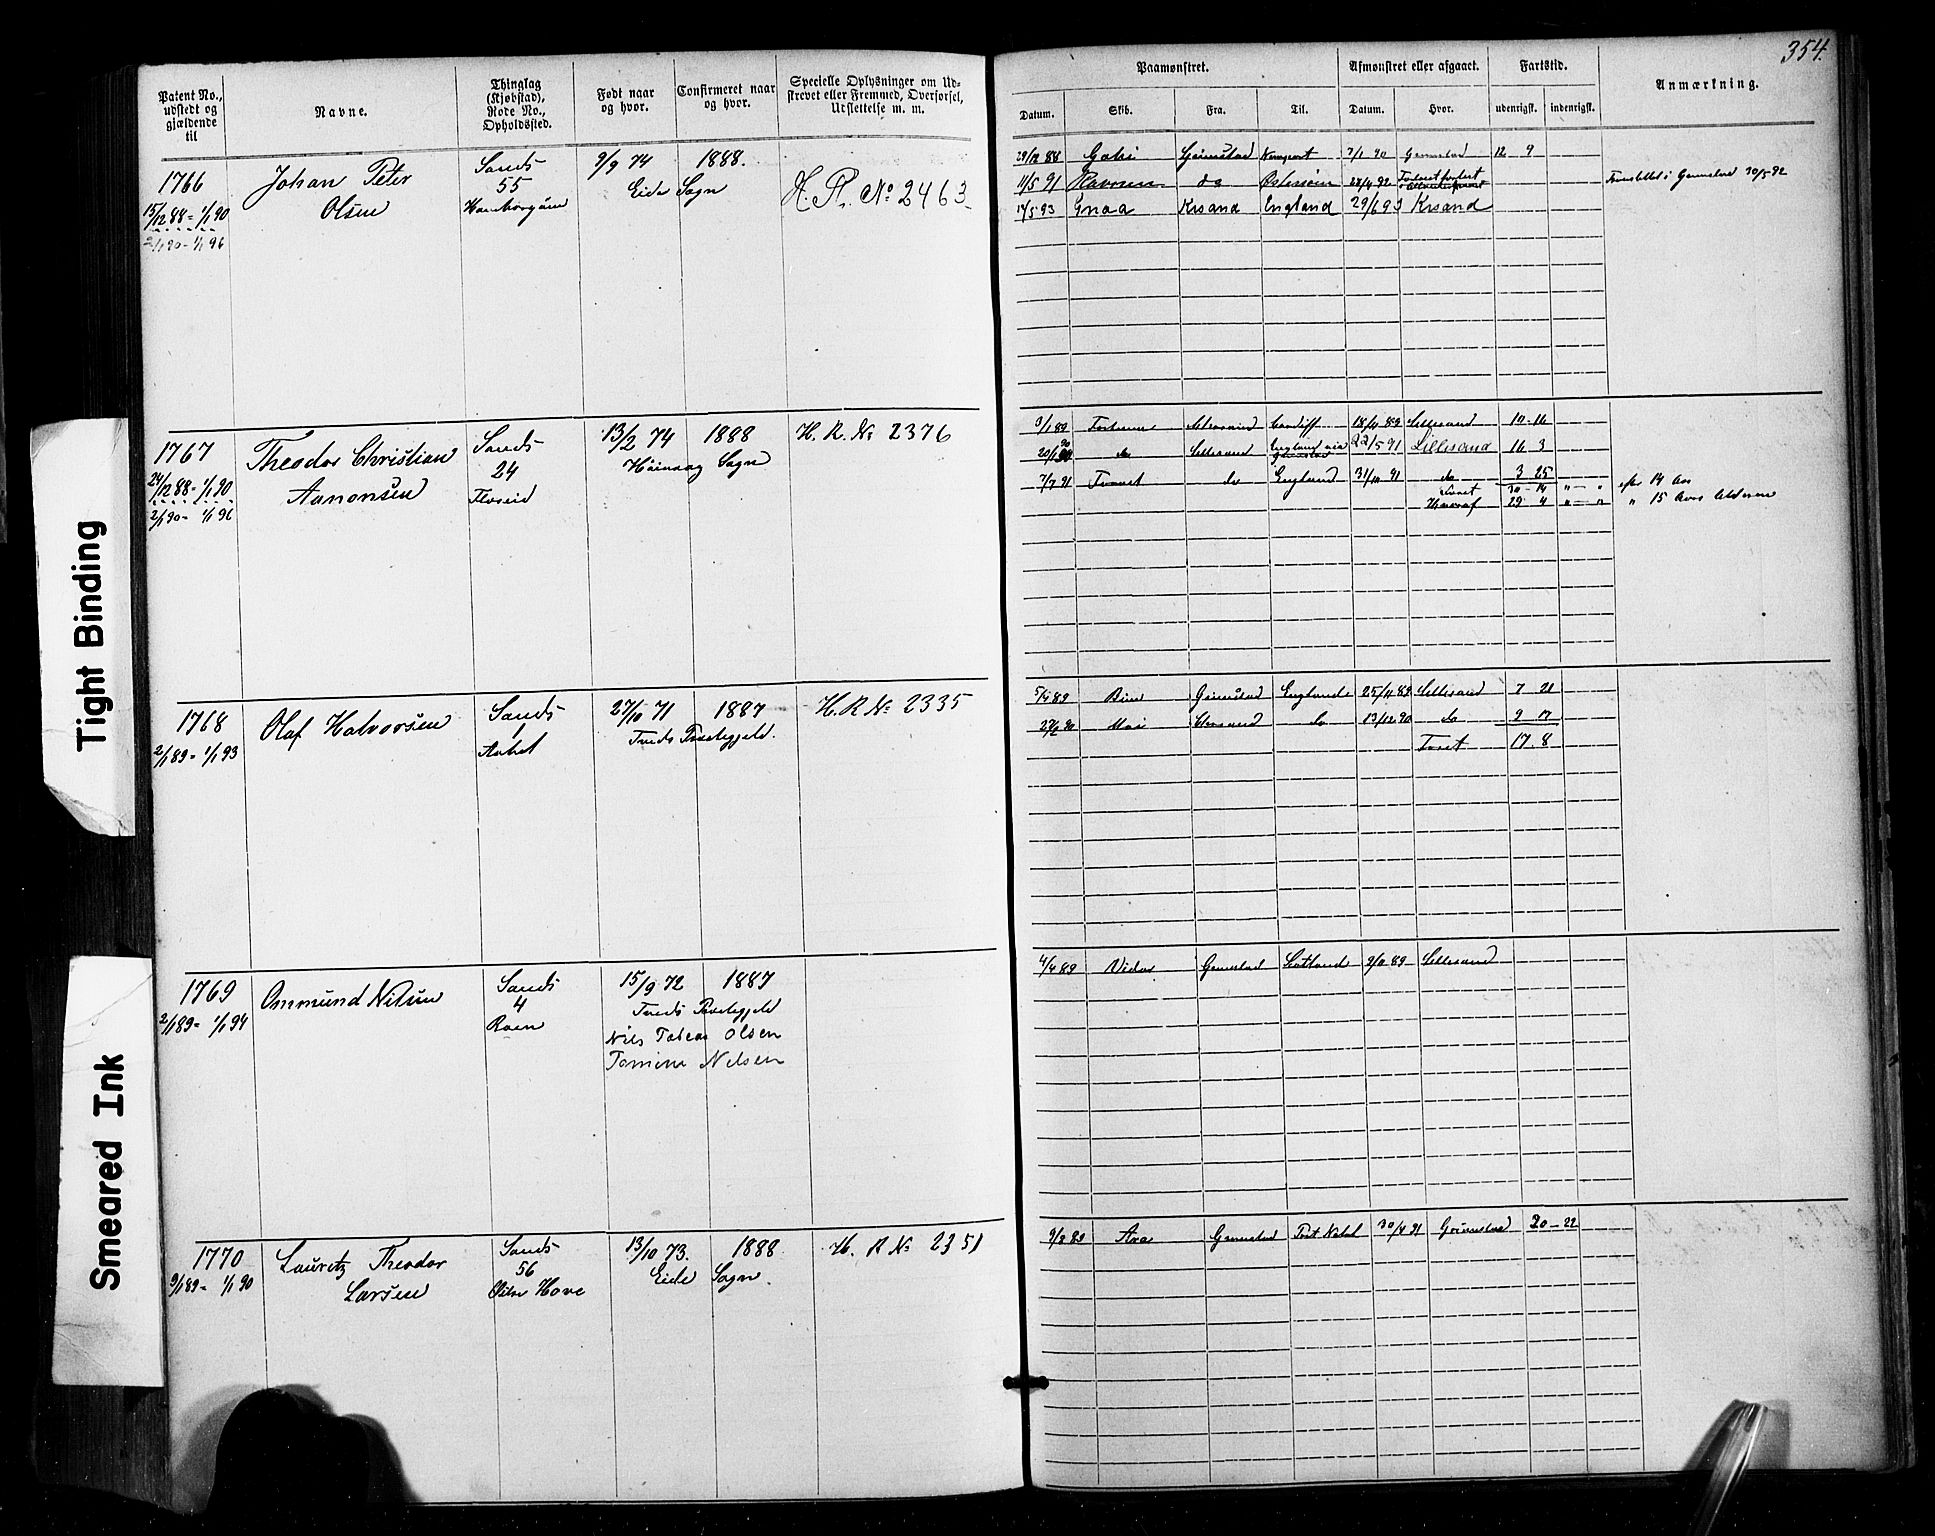 354.
Patent No., udstedt og gjældende til
Navne.
Thinglag (Kjøbstad), Rode No., Opholdssted.
Født naar og hvor.
Confirmeret naar og hvor.
Specielle Oplysninger om Udskrevet eller Fremmed, Overførsel, Udslettelse m. m.
Paamønstret.
Afmønstret eller afgaaet.
Fartstid.
Anmærkning.
Datum.
Skib.
Fra.
Til.
Datum.
Hvor.
udenrigsk.
indenrigsk.
1766
15/12 88 - 1/1 90
2/1 90 - 1/1 96
Johan Peter
Olsen
Sands
55
9/9 74
1888.
Eide Sogn
H. R. No 2463
29/12 88 Grimstad 7/1 90 Grimstad 12 9
11/5 91 Ravnen do Østersøen
Grimstad 30/5 92
Gnaa Krsand England 29/6 93 Krsand
1767
24/12 88 - 1/1 90
2/1 90 - 1/1 96
Theodor Christian
Aanonsen
Sands
24
13/2 74
1888
Sogn
H. R. No 2376
Cardiff 18/11 89 Lillesand 10 - 16
do Lillesand 22/5 91 Lillesand 16 3
7/7 91 do England 31/10 91 do 3 25
30 - 14 " " efter 14 Aar
29 4 " " " 15 Aars Alderen
1768
2/1 89 - 1/1 93
Olaf Halvorsen
Sands
1
27/10 71
1887
Præstegjeld.
H. R No 2335
5/4 89 Grimstad England 25/11 89 Lillesand 7 21
do 13/12 90 do 9 17
17. 8
1769
2/1 89 - 1/1 94
Ommund Nilsen
Sands
4
Roen
15/9 72
1887
Præstegjeld
Nils Tobias Olsen
Tomine Nelsen
4/4 89 Vidar Grimstad Skotland 9/11 89 Lillesand
1770
9/1 89 - 1/1 90
Lauritz Theodor
Larsen
Sands
56
Hove
13/10 73.
1888
Eide Sogn.
H. R No 2351
Ara Grimstad Port Natal 30/4 91 Grimstad 20 - 22
Tight Binding
Smeared Ink